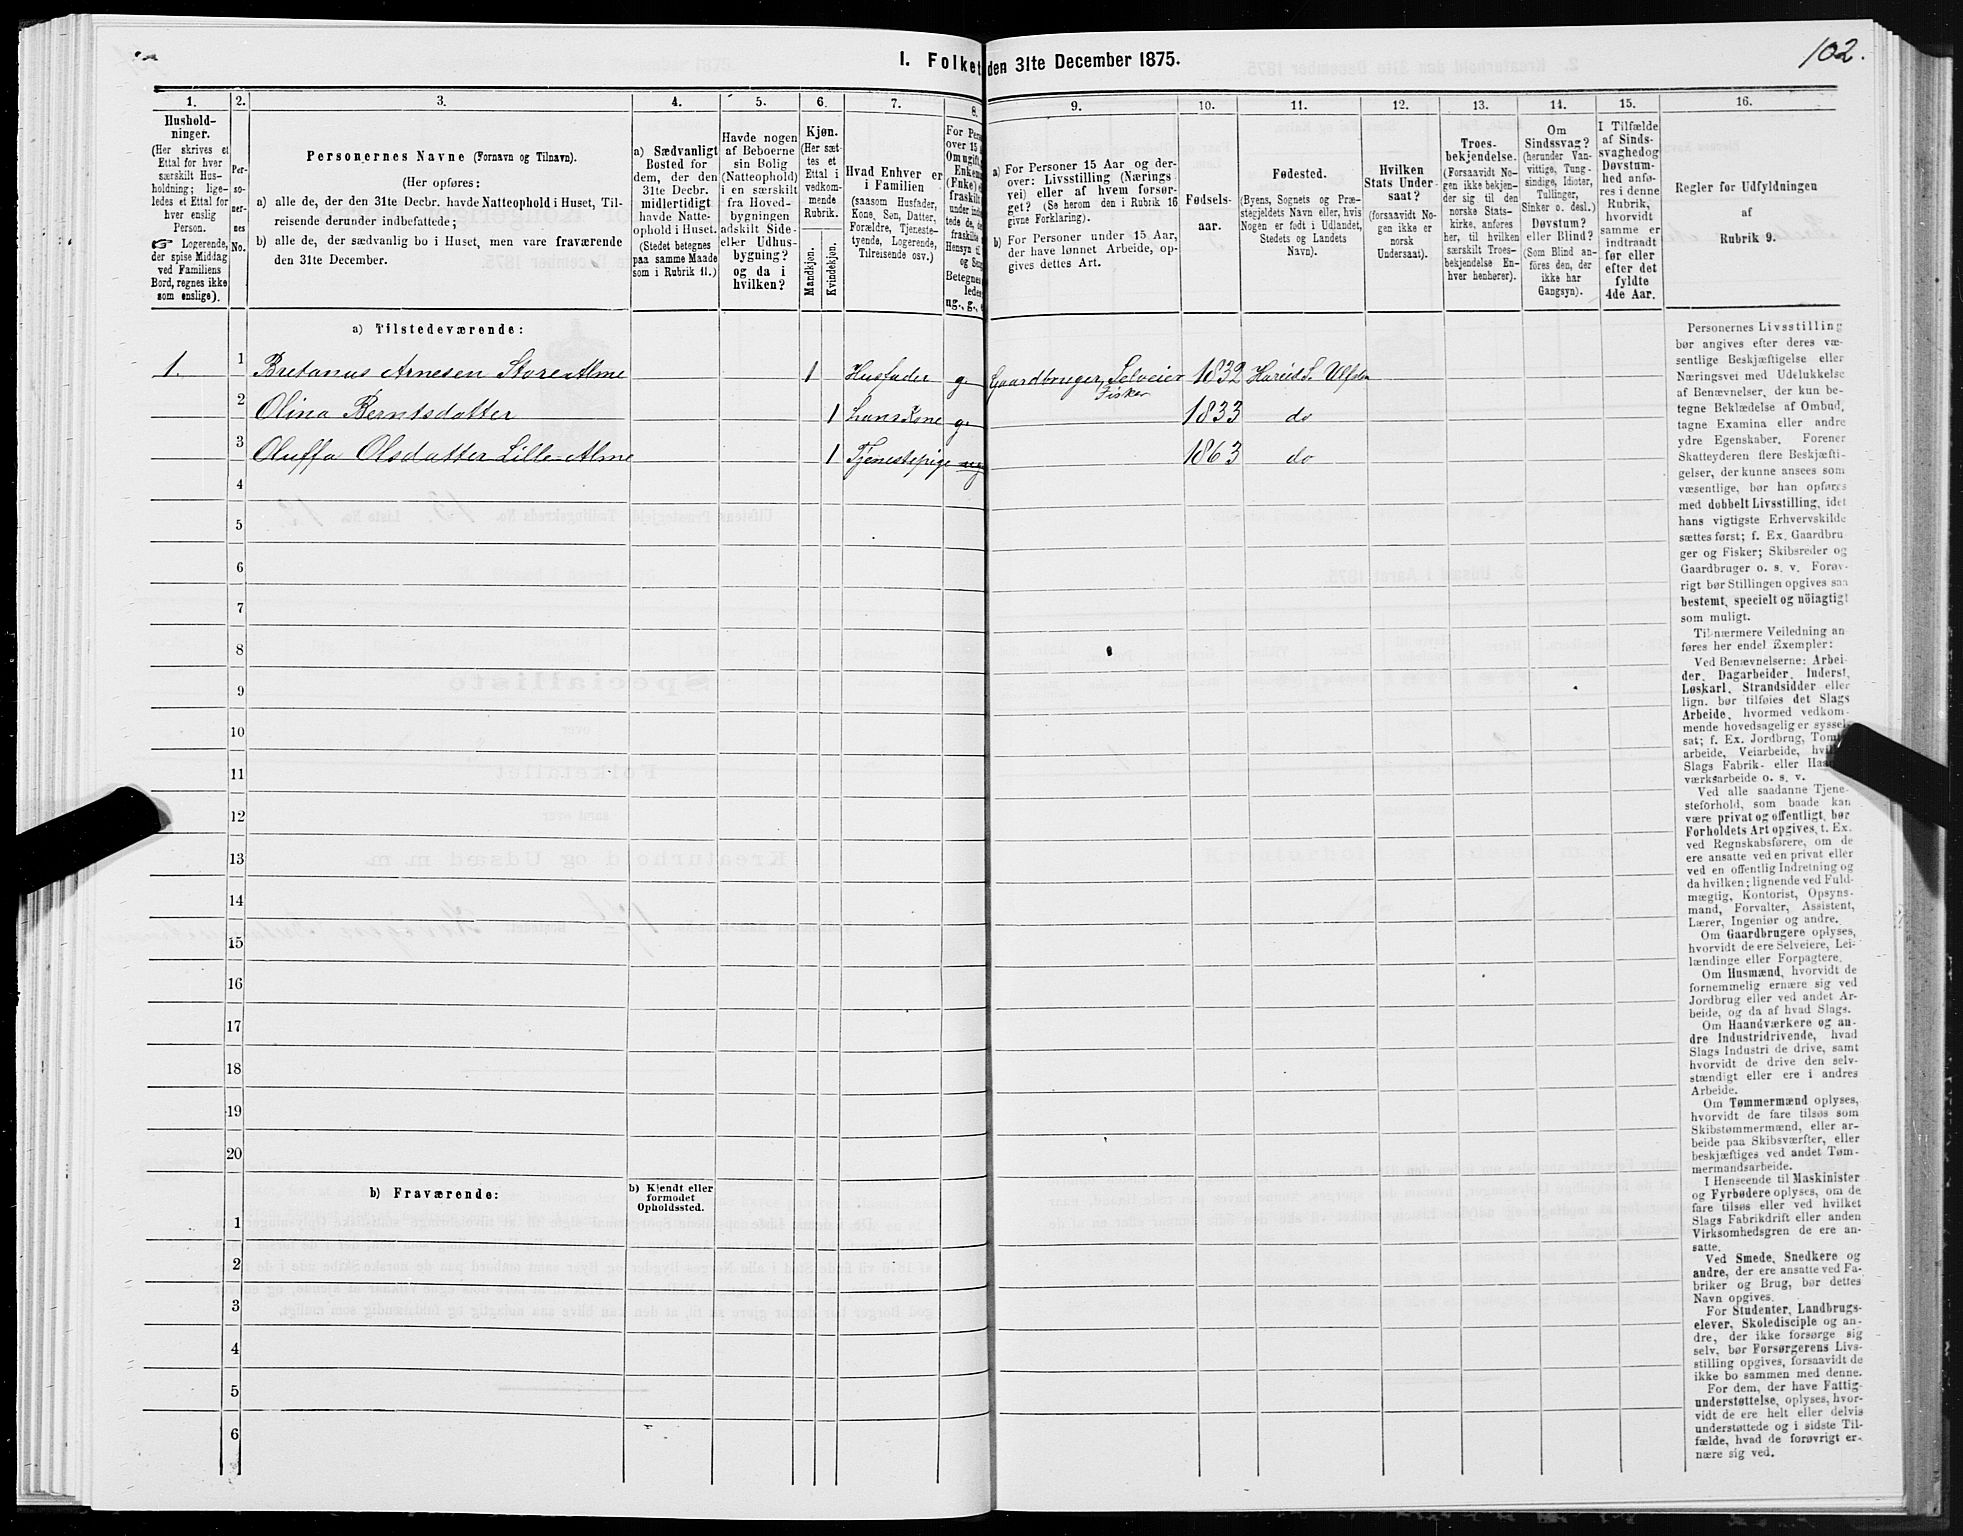 102.
I. Folket
den 31te December 1875.
1. 2. 3. 4. 5. 6. 7. 8. 9. 10. 11. 12. 13. 14. 15. 16.
Hushold-
ninger.
(Her skrives et
Ettal for hver
særskilt Hus-
holdning; lige-
ledes et Ettal for
hver enslig
Person.
☞ Logerende,
der spise Middag
ved Familiens
Bord, regnes ikke
som enslige).
Per-
so-
ner-
nes
No.
Personernes Navne (Fornavn og Tilnavn).
(Her opføres:
a) alle de, der den 31te Decbr. havde Natteophold i Huset, Til-
reisende derunder indbefattede;
b) alle de, der sædvanlig bo i Huset, men vare fraværende
den 31te December.
a) Sædvanligt
Bosted for
dem, der den
31te Decbr.
midlertidigt
havde Natte-
ophold i Huset.
(Stedet betegnes
paa samme Maade
som i Rubrik 11.)
Havde nogen
af Beboerne
sin Bolig
(Natteophold)
i en særskilt
fra Hoved-
bygningen
adskilt Side-
eller Udhus-
bygning?
og da i
hvilken?
Kjøn.
(Her sæt-
tes et
Ettal i
vedkom-
mende
Rubrik.
Mandkjøn.
Kvindekjøn.
Hvad Enhver er
i Familien
(saasom Husfader,
Kone, Søn, Datter,
Forældre, Tjeneste-
tyende, Logerende,
Tilreisende osv.)
For Pers
over 15
Om ugift,
Enkem
(Fnke)
fraskilt
under ind
tede de,
fraskilte
Hensyn til
og Seng
Betegnes
lede
ug., g., e
a) For Personer 15 Aar og der-
over: Livsstilling (Nærings
vei) eller af hvem forsør-
get? (Se herom den i Rubrik 16
givne Forklaring).
b) For Personer under 15 Aar,
der have lønnet Arbeide, op-
gives dettes Art.
Fødsels-
aar.
Fødested.
(Byens, Sognets og Præ-
stegjeldets Navn eller, hvis
Nogen er født i Udlandet,
Stedets og Landets
Navn).
Hvilken
Stats Under-
saat?
(forsaavidt No-
gen ikke er
norsk
Undersaat).
Troes-
bekjendelse.
(Forsaavidt No-
gen ikke bekjen-
der sig til den
norske Stats-
kirke, anføres
her, til hvilken
særskilt Troes-
bekjendelse En-
hver henhører).
Om
Sindssvag?
(herunder Van-
vittige, Tung-
sindige, Idioter,
Tullinger,
Sinker o. desl.)
Døvstum?
eller Blind?
(Som Blind an-
føres den, der
ikke har
Gangsyn).
I Tilfælde
af Sinds-
svaghed og
Døvstum-
hed anfø-
res i denne
Rubrik,
hvorvidt
samme er
indtraadt
før eller
efter det
fyldte
4de Aar.
Regler for Udfyldningen
af
Rubrik 9.
a) Tilstedeværende:
1. 1 Bretanus Arnesen Store-Alme 1 Husfader g. Gaardbruger, Selveier 1832 Hareid S. Ulfsten
Fisker
2 Olina Berntsdatter 1 hans Kone g. 1833 do
3 Oluffa Olsdatter Lille-Alme 1 Tjenestepige ug 1863 do
4
5
6
7
8
9
10
11
12
13
14
15
16
17
18
19
20
b) Fraværende:
b) Kjendt eller
formodet
Opholdssted.
1
2
3
4
5
6
Personernes Livsstilling
bør angives efter deres væ-
sentlige Beskjæftigelse eller
Næringsvei med Udelukkelse
af Benævnelser, der kun be-
tegne Beklædelse af Ombud,
tagne Examina eller andre
ydre Egenskaber. Forener
Skatteyderen flere Beskjæfti-
gelser, der kunne ansees som
væsentlige, bør han opføres
med dobbelt Livsstilling, idet
hans vigtigste Erhvervskilde
sættes først; f. Ex. Gaardbru
ger og Fisker; Skibsreder og
Gaardbruger o. s. v. Forøv-
rigt bør Stillingen opgives saa
bestemt, specielt og nöiagtigt
som muligt.
Til nærmere Veiledning an
føres her endel Exempler:
Ved Benævnelserne: Arbei-
der, Dagarbeider, Inderst,
Løskarl, Strandsidder eller
lign. bør tilføies det Slags
Arbeide, hvormed vedkom-
mende hovedsagelig er syssel-
sat; f. Ex. Jordbrug, Tomt
arbeide, Veiarbeide, hvil
Slags Fabrik- eller Haan
værksarbeide o. s. v.
Ved alle saadanne Tjene-
steforhold, som baade kan
være privat og offentligt, bør
Forholdets Art opgives, t. Ex.
ved Regnskabsførere, om de
ere ansatte ved en privat eller
ved en offentlig Indretning og
da hvilken; lignende ved Fuld-
mægtig, Kontorist, Opsyns-
mand, Forvalter, Assistent,
Lærer, Ingeniør og andre.
Om Gaardbrugere oplyses,
hvorvidt de ere Selveiere, Lei-
lændinge eller Forpagtere.
Om Husmænd, hvorvidt de
fornemmelig ernære sig ved
Jordbrug eller ved andet Ar-
beide, og da af hvad Slags.
Om Haandværkere og an-
dre Industridrivende, hvad
Slags Industri de drive, samt
hvorvidt de drive den selv-
stændigt eller ere i andres
Arbeide.
Om Tømmermænd oplyses,
hvorvidt de fare tilsøs som
Skibstømmermænd, eller ar-
beide paa Skibsværfter, eller
beskjæftiges ved andet Tøm-
mermandsarbeide.
I Henseende til Maskinister
og Fyrbødere oplyses, om de
fare tilsøs eller ved hvilket
Slags Fabrikdrift eller anden
Virksomhedsgren de ere an-
satte.
Ved Smede, Snedkere og
andre, der ere ansatte ved Fa-
briker og Brug, bør dettes
Navn opgives.
For Studenter, Landbrugs-
elever, Skoledisciple og an-
dre, der ikke forsørge sig
selv, bør Forsørgerens Livs-
stilling opgives, forsaavidt de
ikke bo sammen med denne.
For dem, der have Fattig-
understøttelse, oplyses, hvor-
vidt de ere helt eller delvis
understøttede og i sidste Til-
fælde, hvad de forøvrigt er-
nære sig ved.